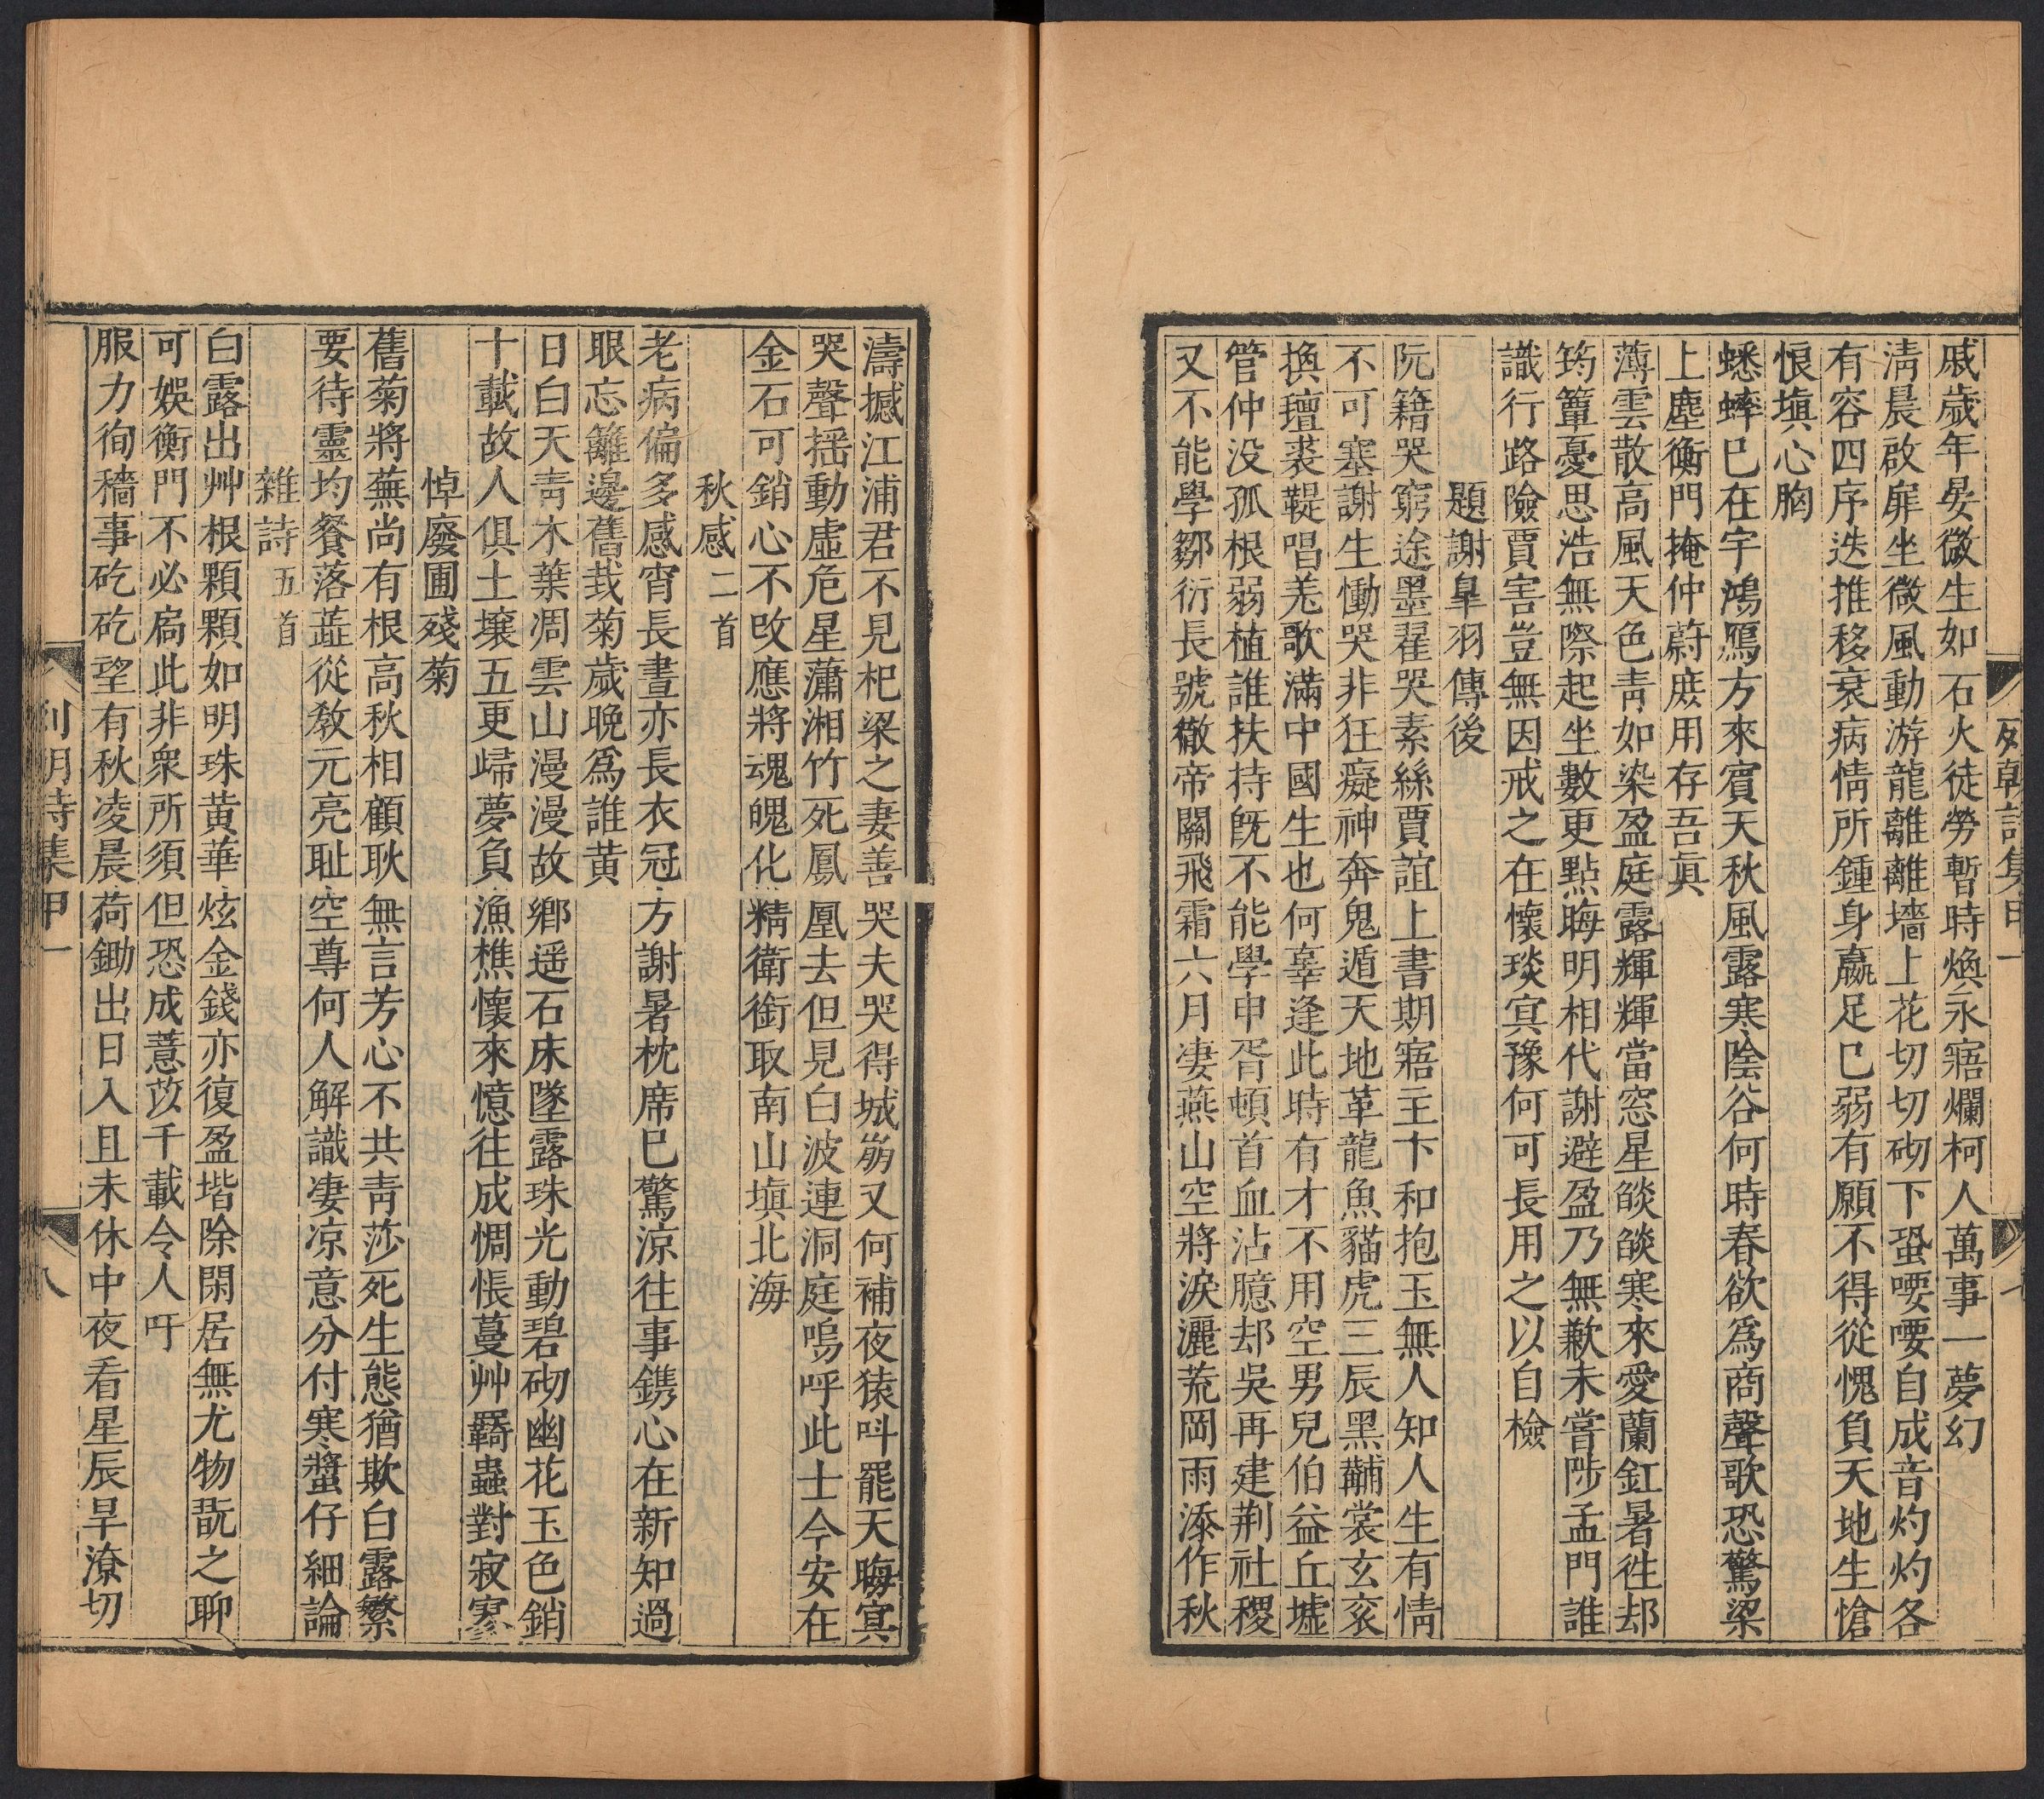 列朝詩集甲一
戚歲年晏微生如石火徒勞暫時煥永寤爛柯人萬事一夢幻
淸晨啟扉坐微風動游龍離離墻上花切切砌下蛩喓喓自成音灼灼各
有容四序迭推移衰病情所鍾身羸足巳弱有願不得從愧負天地生愴
恨塡心胸
蟋蟀巳在宇鴻鴈方來賓天秋風露寒陰谷何時春欲爲商聲歌恐驚梁
上塵衡門掩仲蔚庶用存吾眞
薄雲散高風天色靑如染盈庭露輝輝當窓星燄燄寒來愛蘭釭暑徃却
筠簟憂思浩無際起坐數更點晦明相代謝避盈乃無歉未嘗陟孟門誰
識行路險賈害豈無因戒之在懷琰冥豫何可長用之以自檢
題謝皐羽傳後
阮籍哭窮途墨翟哭素絲賈誼上書期寤主卞和抱玉無人知人生有情
不可塞謝生慟哭非狂癡神奔鬼遁天地革龍魚貓虎三辰黑黼裳玄衮
換氊裘鞮唱羗歌滿中國生也何辜逢此時有才不用空男兒伯益丘墟
管仲没孤根弱植誰扶持旣不能學申胥頓首血沾臆却吳再建荆社稷
又不能學鄒衍長號徹帝關飛霜六月凄燕山空將淚灑荒岡雨添作秋
濤撼江浦君不見杞梁之妻善哭夫哭得城崩又何補夜猿呌罷天晦冥
哭聲揺動虛危星瀟湘竹死鳳凰去但見白波連洞庭嗚呼此士今安在
金石可銷心不改應將魂魄化精衛銜取南山塡北海
秋感二首
老病偏多感宵長晝亦長衣冠方謝暑枕席巳驚涼往事鐫心在新知過
眼忘籬邊舊栽菊歲晚爲誰黄
日白天靑木葉凋雲山漫漫故鄉遥石床墜露珠光動碧砌幽花玉色銷
十載故人俱土壤五更歸夢負漁樵懷來憶往成惆悵蔓艸羇蟲對寂寥
悼廢圃殘菊
舊菊將蕪尚有根高秋相顧耿無言芳心不共靑莎死生態猶欺白露繁
要待靈均餐落蘂從敎元亮耻空尊何人解識凄凉意分付寒螿仔細論
雜詩五首
白露出艸根顆顆如明珠黄華炫金錢亦復盈堦除閑居無尤物翫之聊
可娛衡門不必扃此非衆所須但恐成薏苡千載令人吁
服力徇穡事矻矻望有秋凌晨荷鋤出日入且未休中夜看星辰旱潦切
列朝詩集甲一
八